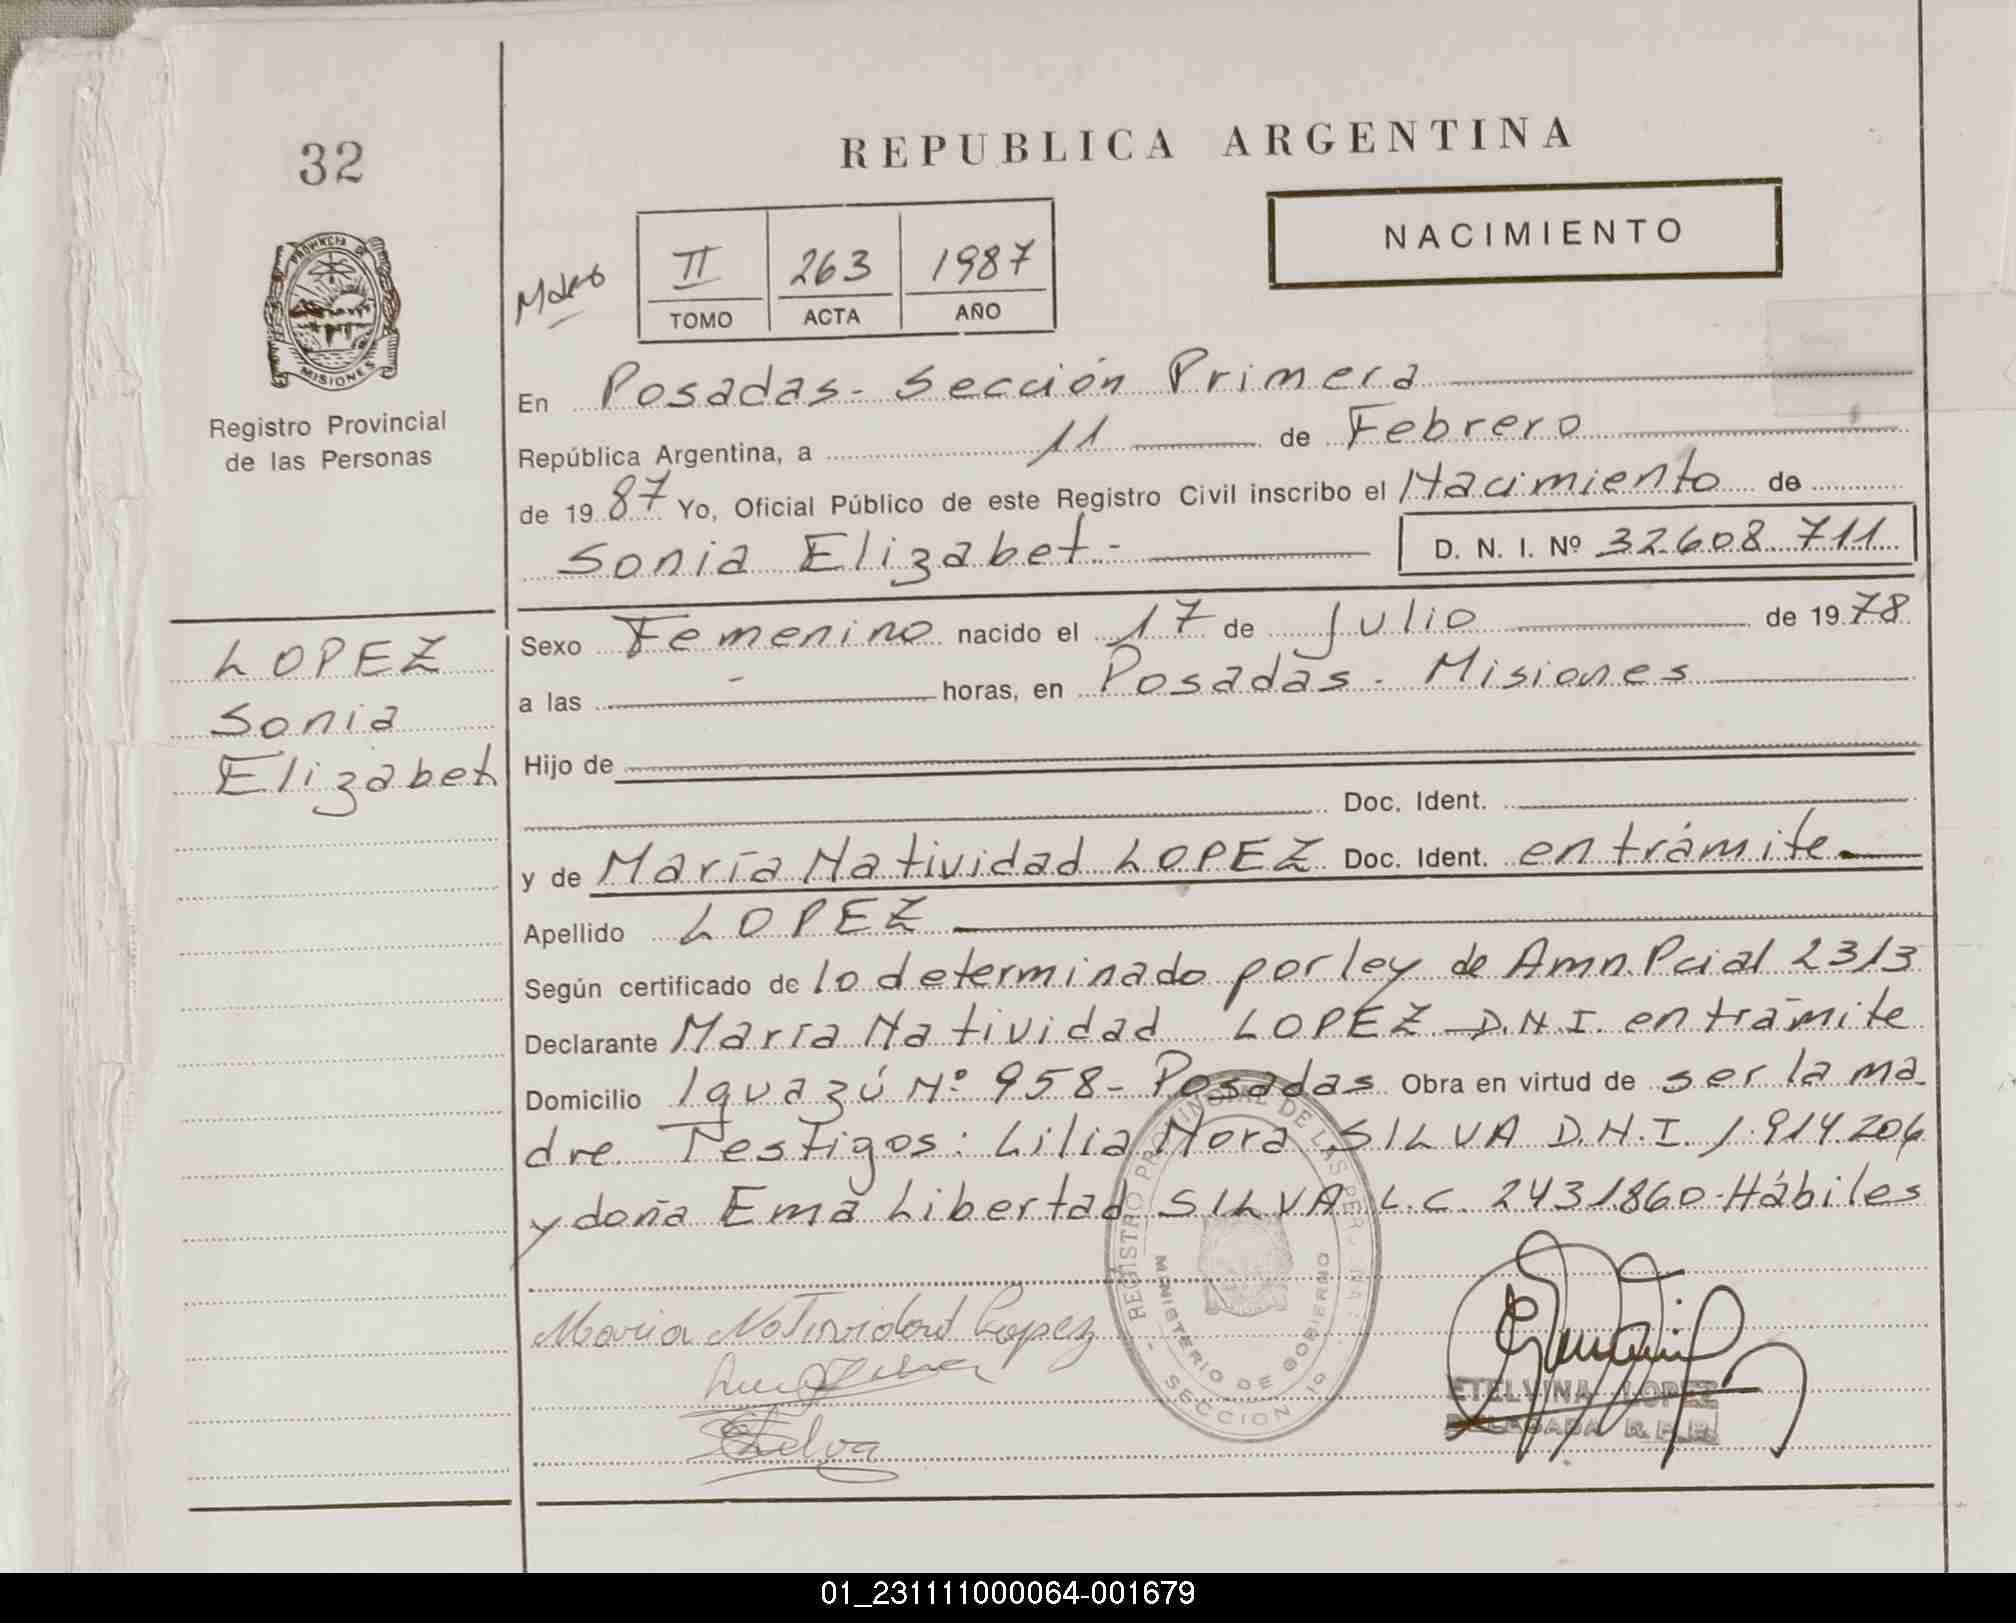 32
REPUBLICA ARGENTINA
NACIMIENTO
II 263 1987
TOMO ACTA AÑO
PROVINCIA DE
MISIONES
Registro Provincial
de las Personas
En Posadas - Sección Primera
República Argentina, a 11 de Febrero
de 1987 Yo, Oficial Público de este Registro Civil inscribo el Nacimiento de
Sonia Elizabet - D. N. I. Nº 32.608.711
LOPEZ
Sonia
Elizabet
Sexo Femenino nacido el 17 de Julio de 1978
a las - horas, en Posadas - Misiones
Hijo de
Doc. Ident.
y de María Natividad LOPEZ Doc. Ident. en trámite
Apellido LOPEZ
Según certificado de lo determinado por ley de Amn. Pcial 2313
Declarante María Natividad LOPEZ D.N.I. en trámite
Domicilio Iguazú Nº 958 - Posadas Obra en virtud de ser la ma
dre Testigos: Lilia Nora SILVA D.N.I. 1.914.206
y doña Ema Libertad SILVA L.C. 2431860 - Hábiles
REGISTRO PROVINCIAL DE LAS PER.
MINISTERIO DE GOBIERNO
SECCION 1º
Maria Natividad Lopez
Silva
ETELVINA LOPEZ
DELEGADA R.P.P.
01_231111000064-001679